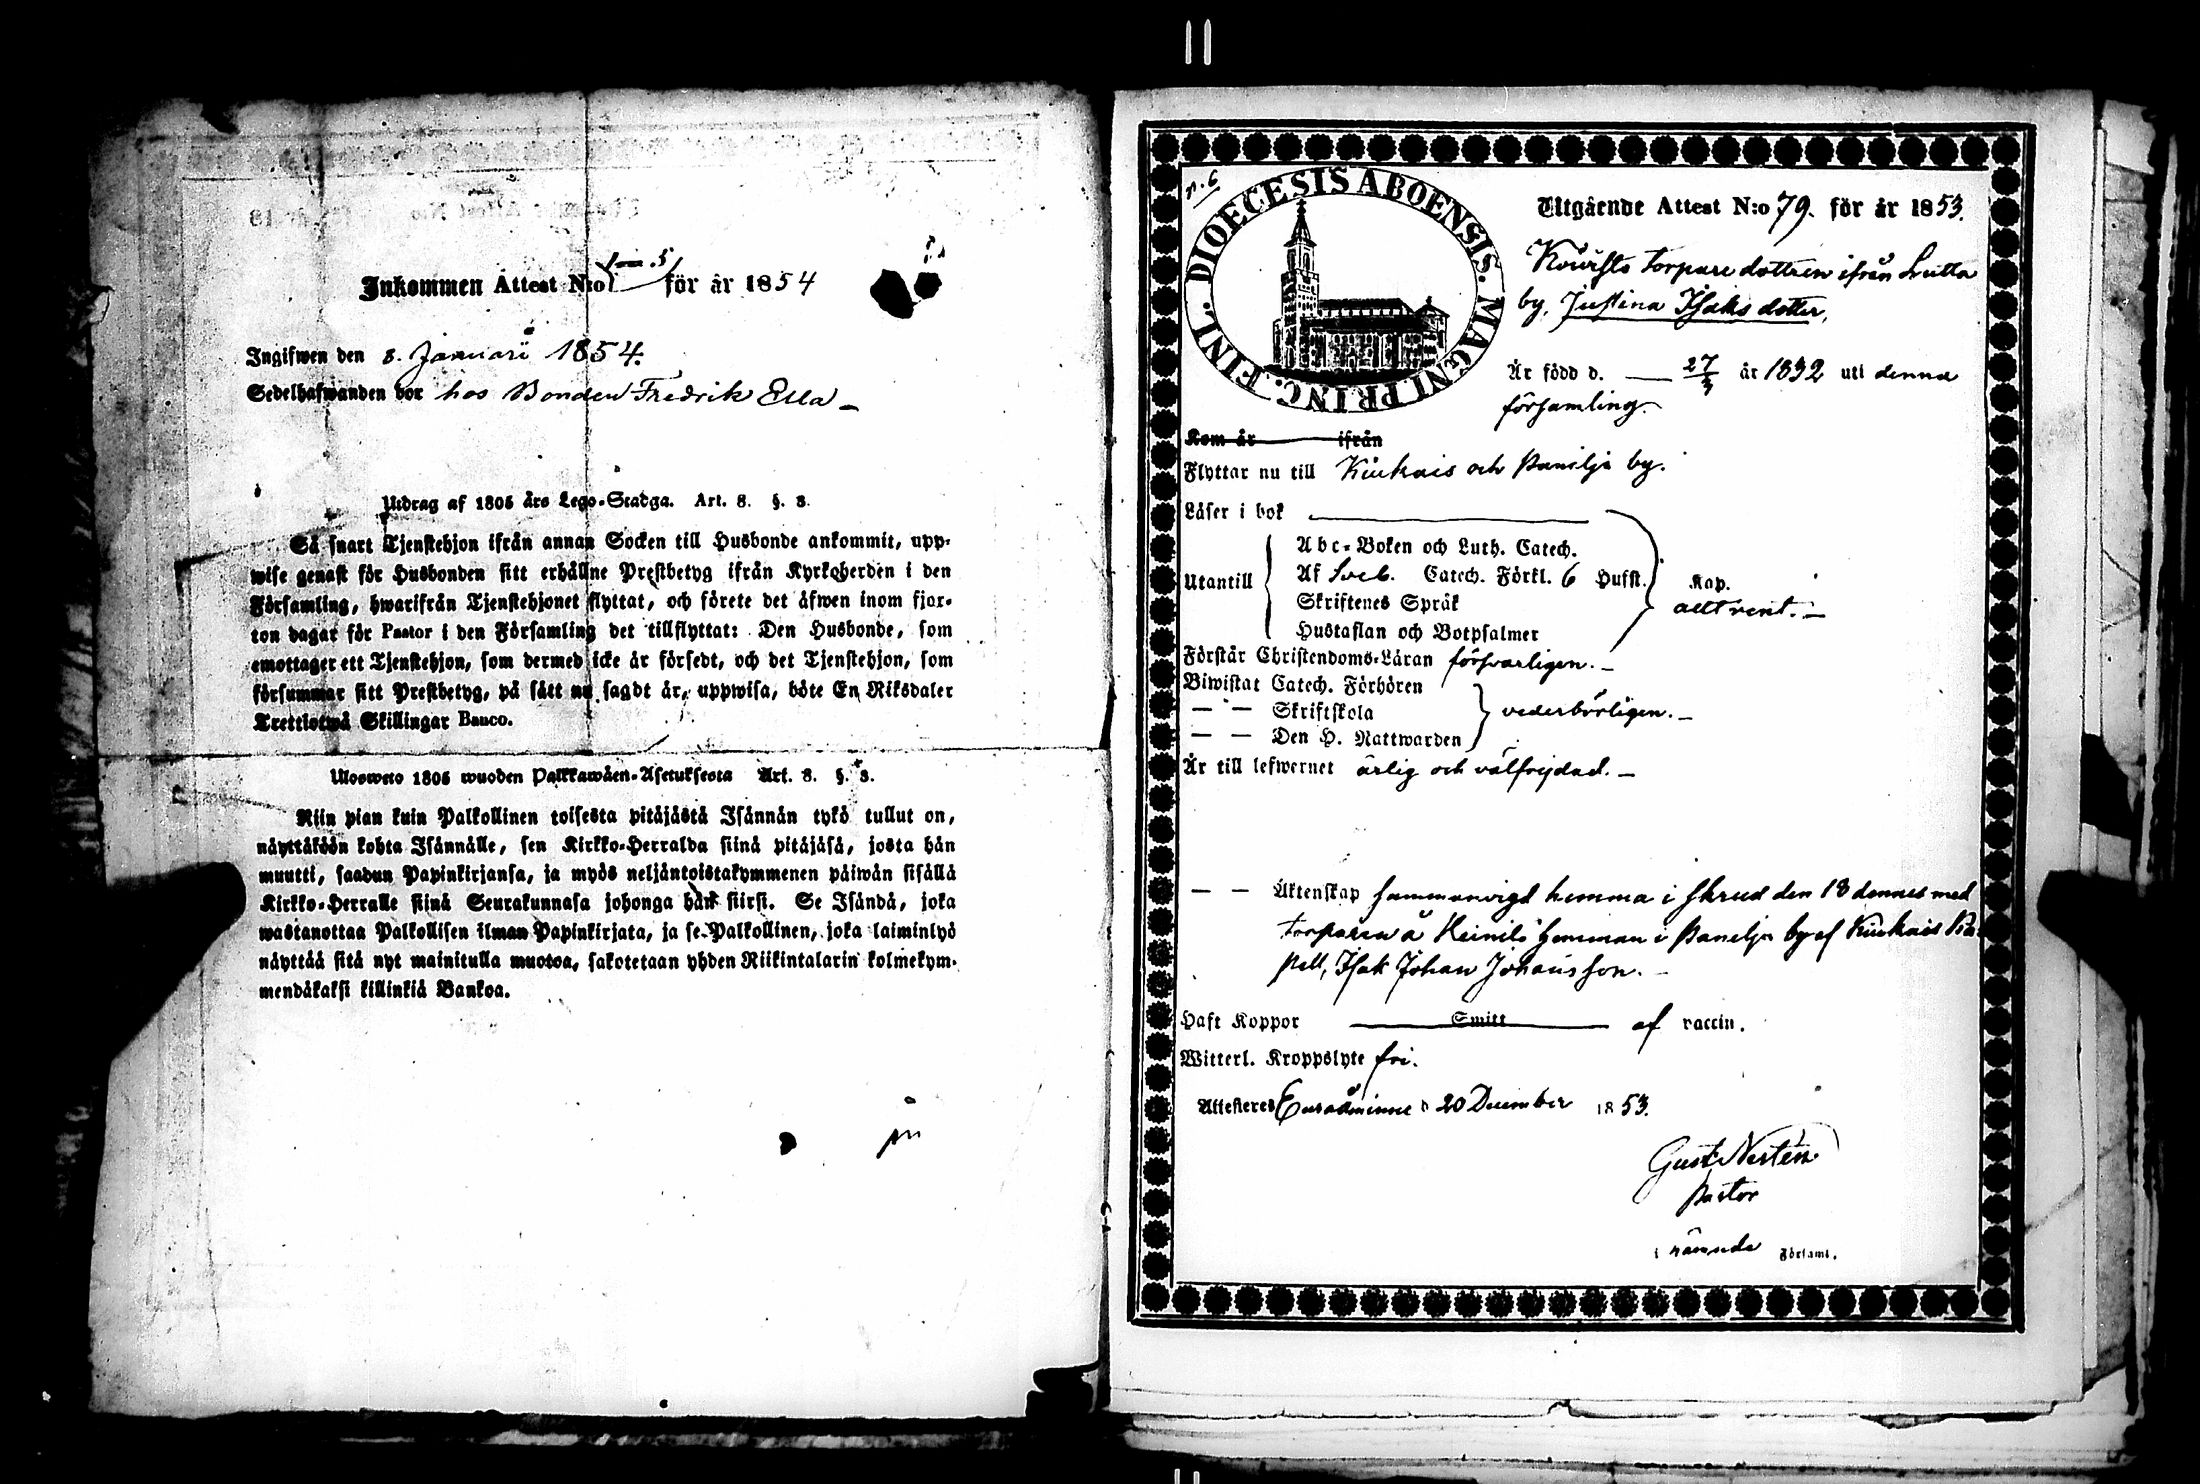 Inkommen Attest N:o 5 för år 1854
Ingifwen den 8. Januari 1854.
Sedelhafwanden bor hos Bonden Fredrik Ella
Utdrag af 1805 års Lego-Stadga. Art. 8. §. 3.
Så snart Tjenstehjon ifrån annan Socken till Husbonde ankommit, upp-
wise genast för Husbonden sitt erhållne Prestbetyg ifrån Kyrkoherden i den
Församling, hwarifrån Tjenstehjonet flyttat, och förete det äfwen inom fjor-
ton dagar för Pastor i den Församling det tillflyttat: Den Husbonde, som
emottager ett Tjenstehjon, som dermed icke är försedt, och det Tjenstehjon, som
försummar sitt Prestbetyg, på sätt nu sagdt är, uppwisa, böte En Riksdaler
Trettiotwå Skillingar Banco.
Uloswето 1805 wuoden Palkkawäen-Asetuksesta Art. 8. §. 3.
Niin pian kuin Palkollinen toisesta pitäjästä Isännän tykö tullut on,
näyttäköön kohta Isännälle, sen Kirkko-Herralda siinä pitäjäsä, josta hän
muutti, saadun Papinkirjansa, ja myös neljäntoistakymmenen päiwän sisällä
Kirkko-Herralle siinä Seurakunnasa johonga hän siirsi. Se Isändä, joka
wastanottaa Palkollisen ilman Papinkirjata, ja se Palkollinen, joka laiminlyö
näyttää sitä nyt mainitulla muotoa, sakotetaan yhden Riikintalarin kolmekym-
mendäkaksi killinkiä Bankoa.
n. 6
DIOECESIS ABOENSIS. MAGNI PRINC. FINL.
Utgående Attest N:o 79. för år 1853.
Torpare dottren ifrån Lutta
by, Justina Isaks dotter,
Är född d. 27/3 år 1832 uti denna
församling.
Kom år ifrån
Flyttar nu till Kiukais och Panelja by.
Läser i bok
Utantill
Abc-Boken och Luth. Catech.
Af Sveb. Catech. Förkl. 6 Hufst. Kap.
Skriftenes Språk
allt rent.
Hustaflan och Botpsalmer
Förstår Christendoms-Läran försvarligen.
Biwistat Catech. Förhören
— — Skriftskola vederbörligen.
— — Den H. Nattwarden
Är till lefwernet ärlig och välfrejdad.
— — Äktenskap sammanvigd hemma i skrud den 18 dennes med
torparen å Heinilä hemman i Panelja by af Kiukais Ka-
pell, Isak Johan Johansson.
Haft Koppor Smitt af vaccin.
Witterl. Kroppslyte fri.
Attesteres Euraåminne d 20 December 1853.
Gust. Nestén
Pastor
i nämnde Församl.